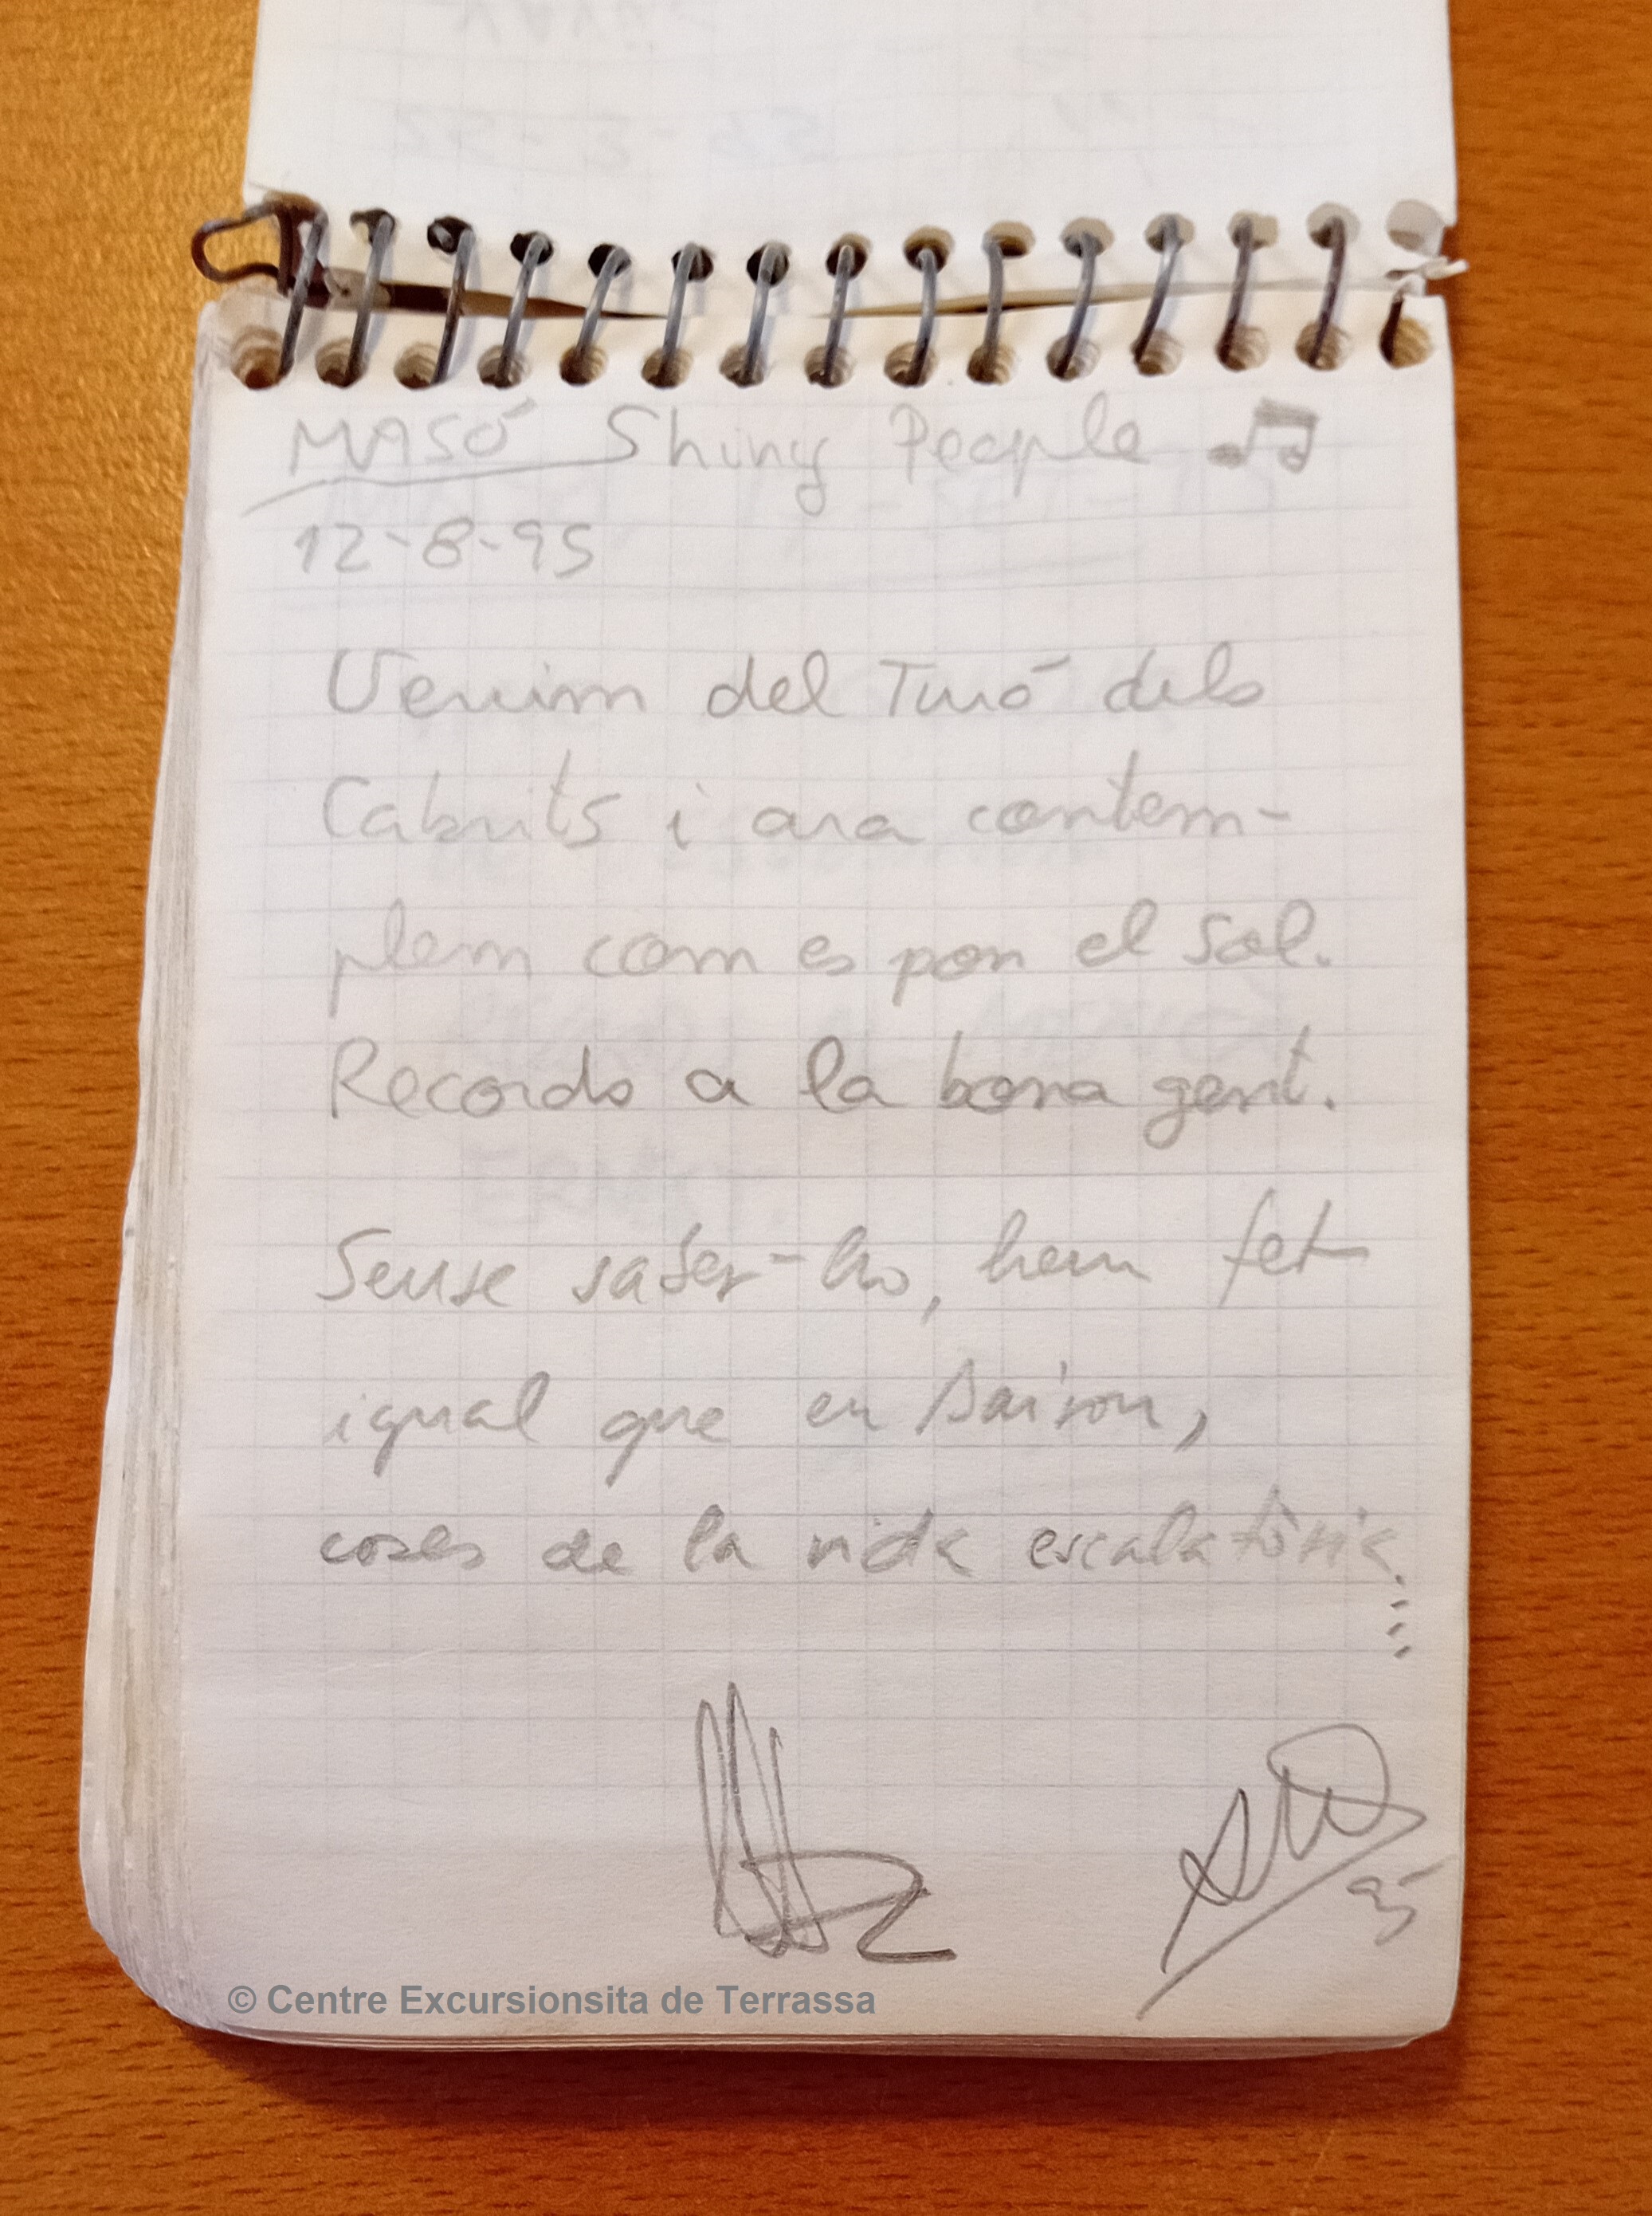 MASÓ Shiny People
12-8-95
Venim del Turó dels
Cabrits i ara contem-
plem com es pon el sol.
Records a la bona gent.
Sense saber-ho, hem fet
igual que en Saison,
coses de la vida escalatòria...
© Centre Excursionsita de Terrassa